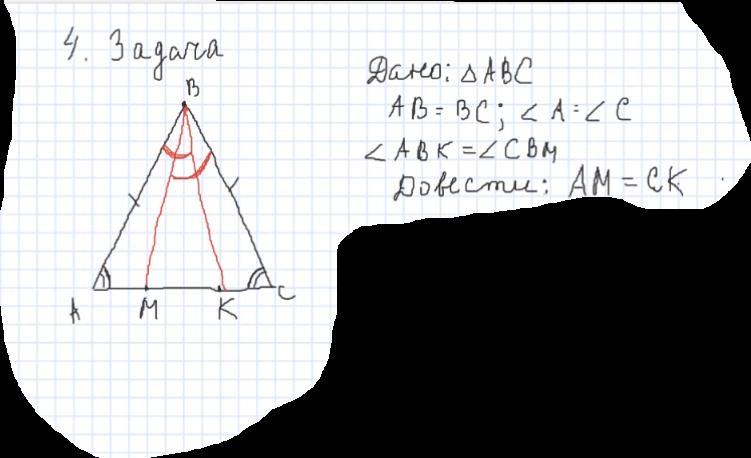 4. Задача
B
A M K C
Дано: △ABC
AB = BC; ∠A = ∠C
∠ABK = ∠CBM
Довести: AM = CK